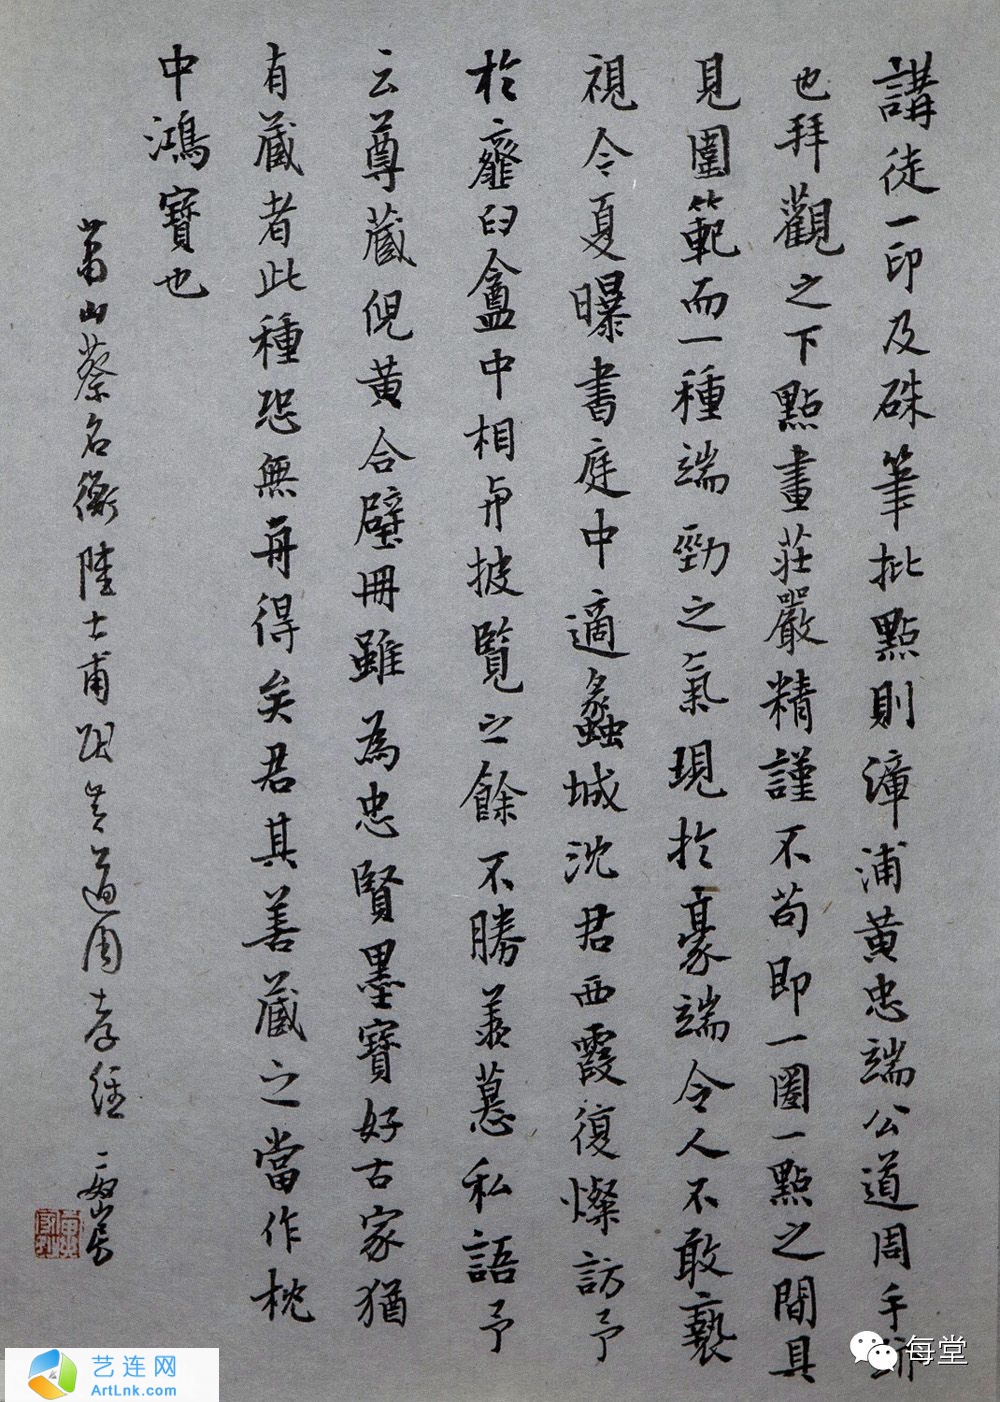 講徒一印及硃筆批點則漳浦黄忠端公道周手
也拜觀之下點畫莊嚴精謹不苟即一圈一點之間具
見圍範而一種端勁之氣現於豪端令人不敢褻
視今夏曝書庭中適蠡城沈君西霞復燦訪予
於虀臼盦中相与披覧之餘不勝羨慕私語予
云尊蔵倪黄合璧冊雖為忠賢墨寶好古家猶
有蔵者此種恐無再得矣君其善蔵之當作枕
中鴻寶也
山蔡名衡陸士甫跋黄道周孝經
艺连网
ArtLnk.com
每堂